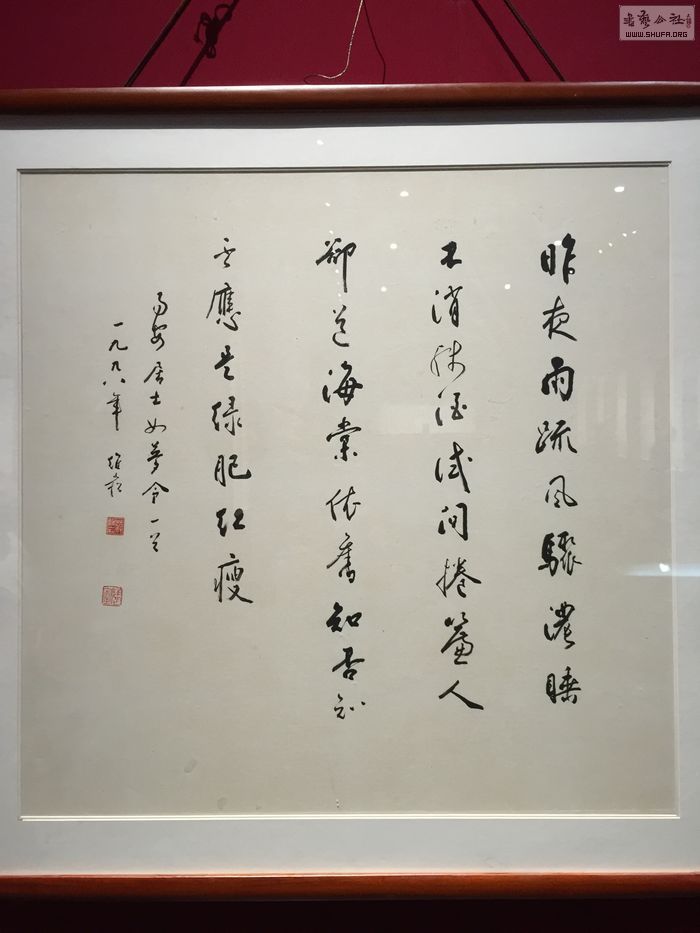 昨夜雨疏风骤濃睡
不消残酒试问捲簾人
卻道海棠依舊知否知
否應是绿肥红瘦
易安居士如夢令一首
一九九八年
书艺公社
WWW.SHUFA.ORG